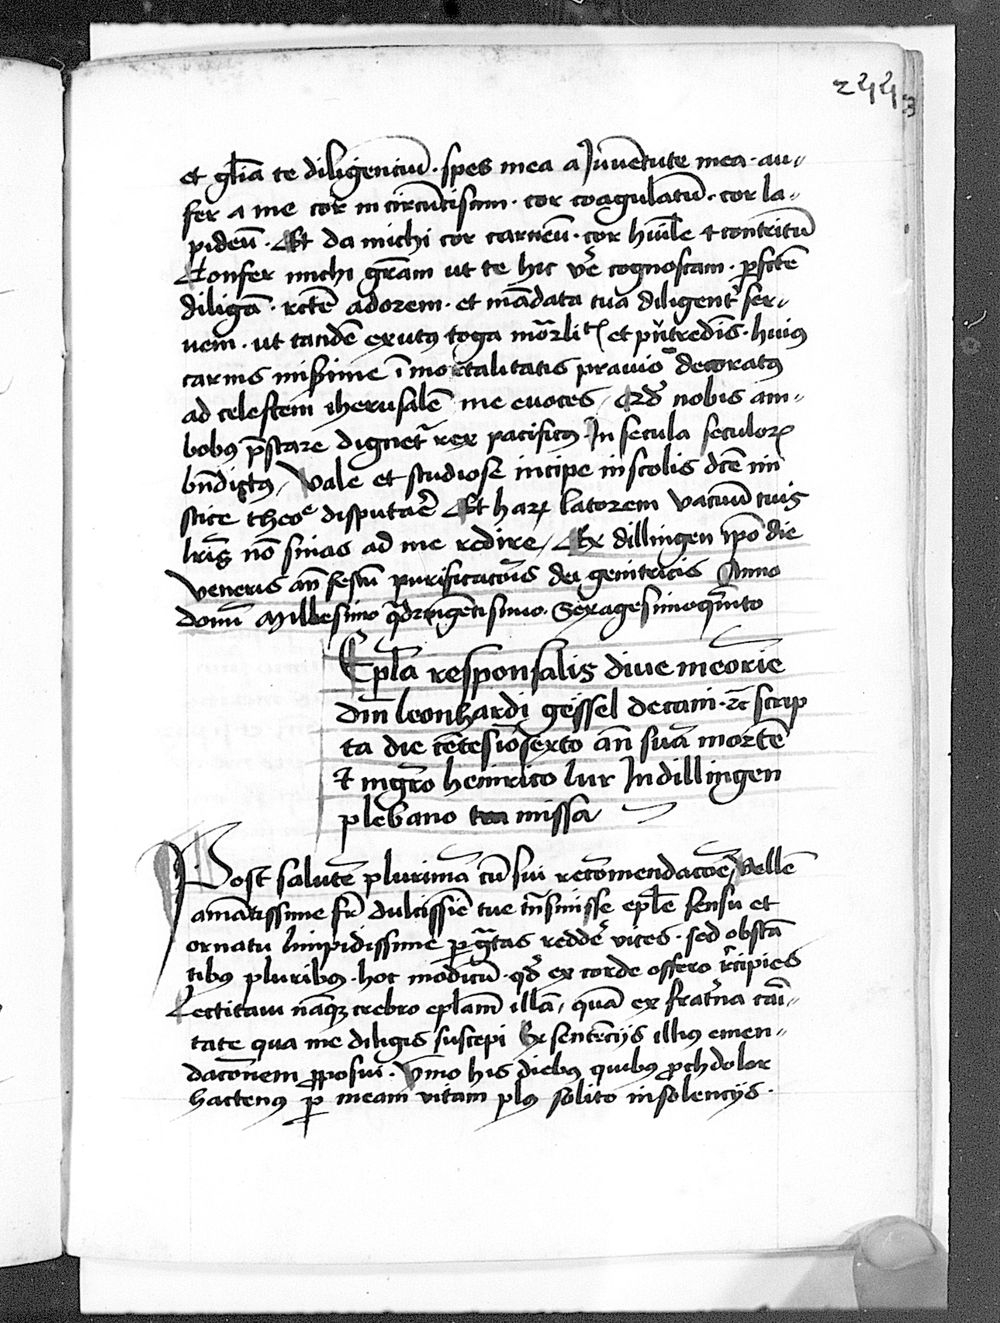 2443
et glīa te diligenciū · spes mea a Juventute mea · au-
fer a me cor incircūcisum · cor coagulatū · cor la-
pideū · Et da michi cor carneū · cor hūile et contritū
Confer michi grām ut te hic vē cognoscam · pfctē
diligā · rctē adorem · et mādata tua diligent ser-
vem · ut tandē exutus toga et putredīs · huius
carnis misime īmortalitatis pravio decoratus
ad celestem iherusalē me evoces / Qd nobis am-
bobus pstare dignet rex pacificus In secula seculoꝝ
bndictus / Vale et studiose incipe in scolis
theoe disputare Et haꝝ latorem vacuū tuis
lris nō sinas ad me redire / Ex dillingen ipo die
veneris an festū purificacōis dei genitricis Anno
domī Millesimo qdringētisimo · Sexagesimoqnto
Epla responsalis dive meorie
dn̄i leonhardi gessel decani · ⁊c scrip
ta die cētesiosexto an suā mortē
et mgro heinrico lur In dillingen
plebano missa
Post salutē plurimā cū sui recōmendacōe Vellē
amātissime fr dulcissīe tue trīsmisse eple sensu et
ornatu limpidissime p grtas redde vices · sed obstā
tibus pluribus · hoc modicū · qd ex corde offero rcipies
Lectitavi nāqꝫ crebro eplam illā / quā ex fratna cari-
tate qua me diligis suscepi Ex sentēcijs illius emen-
dacōnem pposui · Vmo his diebus quibus pchdolor
hactenus p meam vitam plus solito insolencijs ·